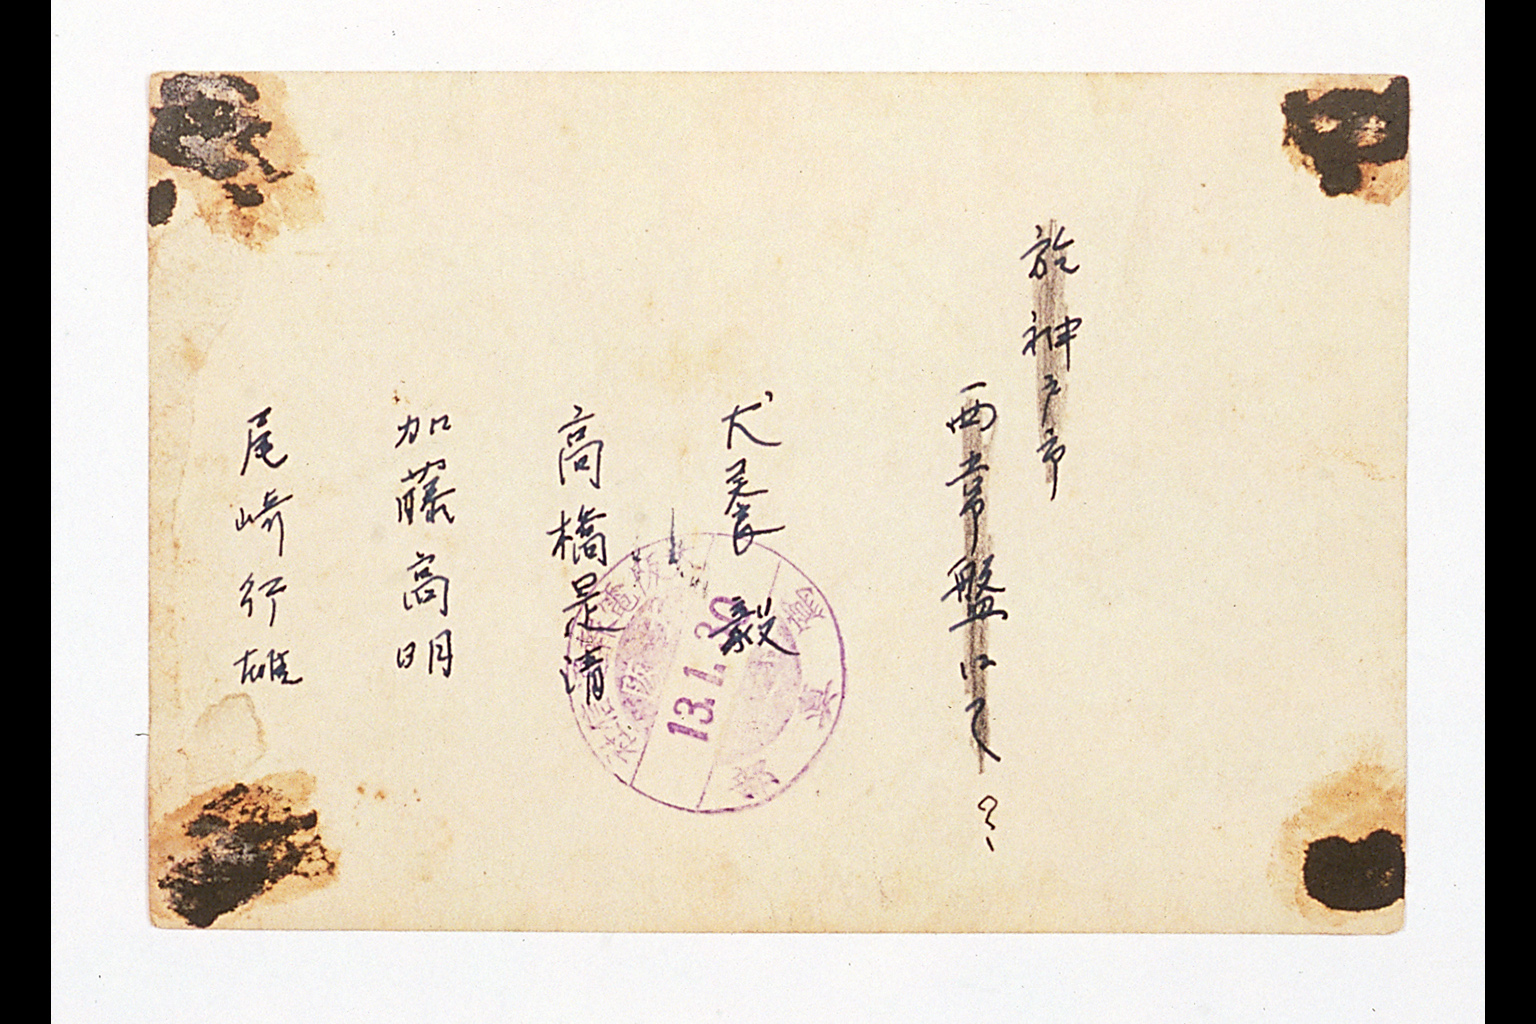 於神戸市
西常盤にて
？
犬養 毅
高橋是清
加藤高明
尾崎行雄
13.1.30